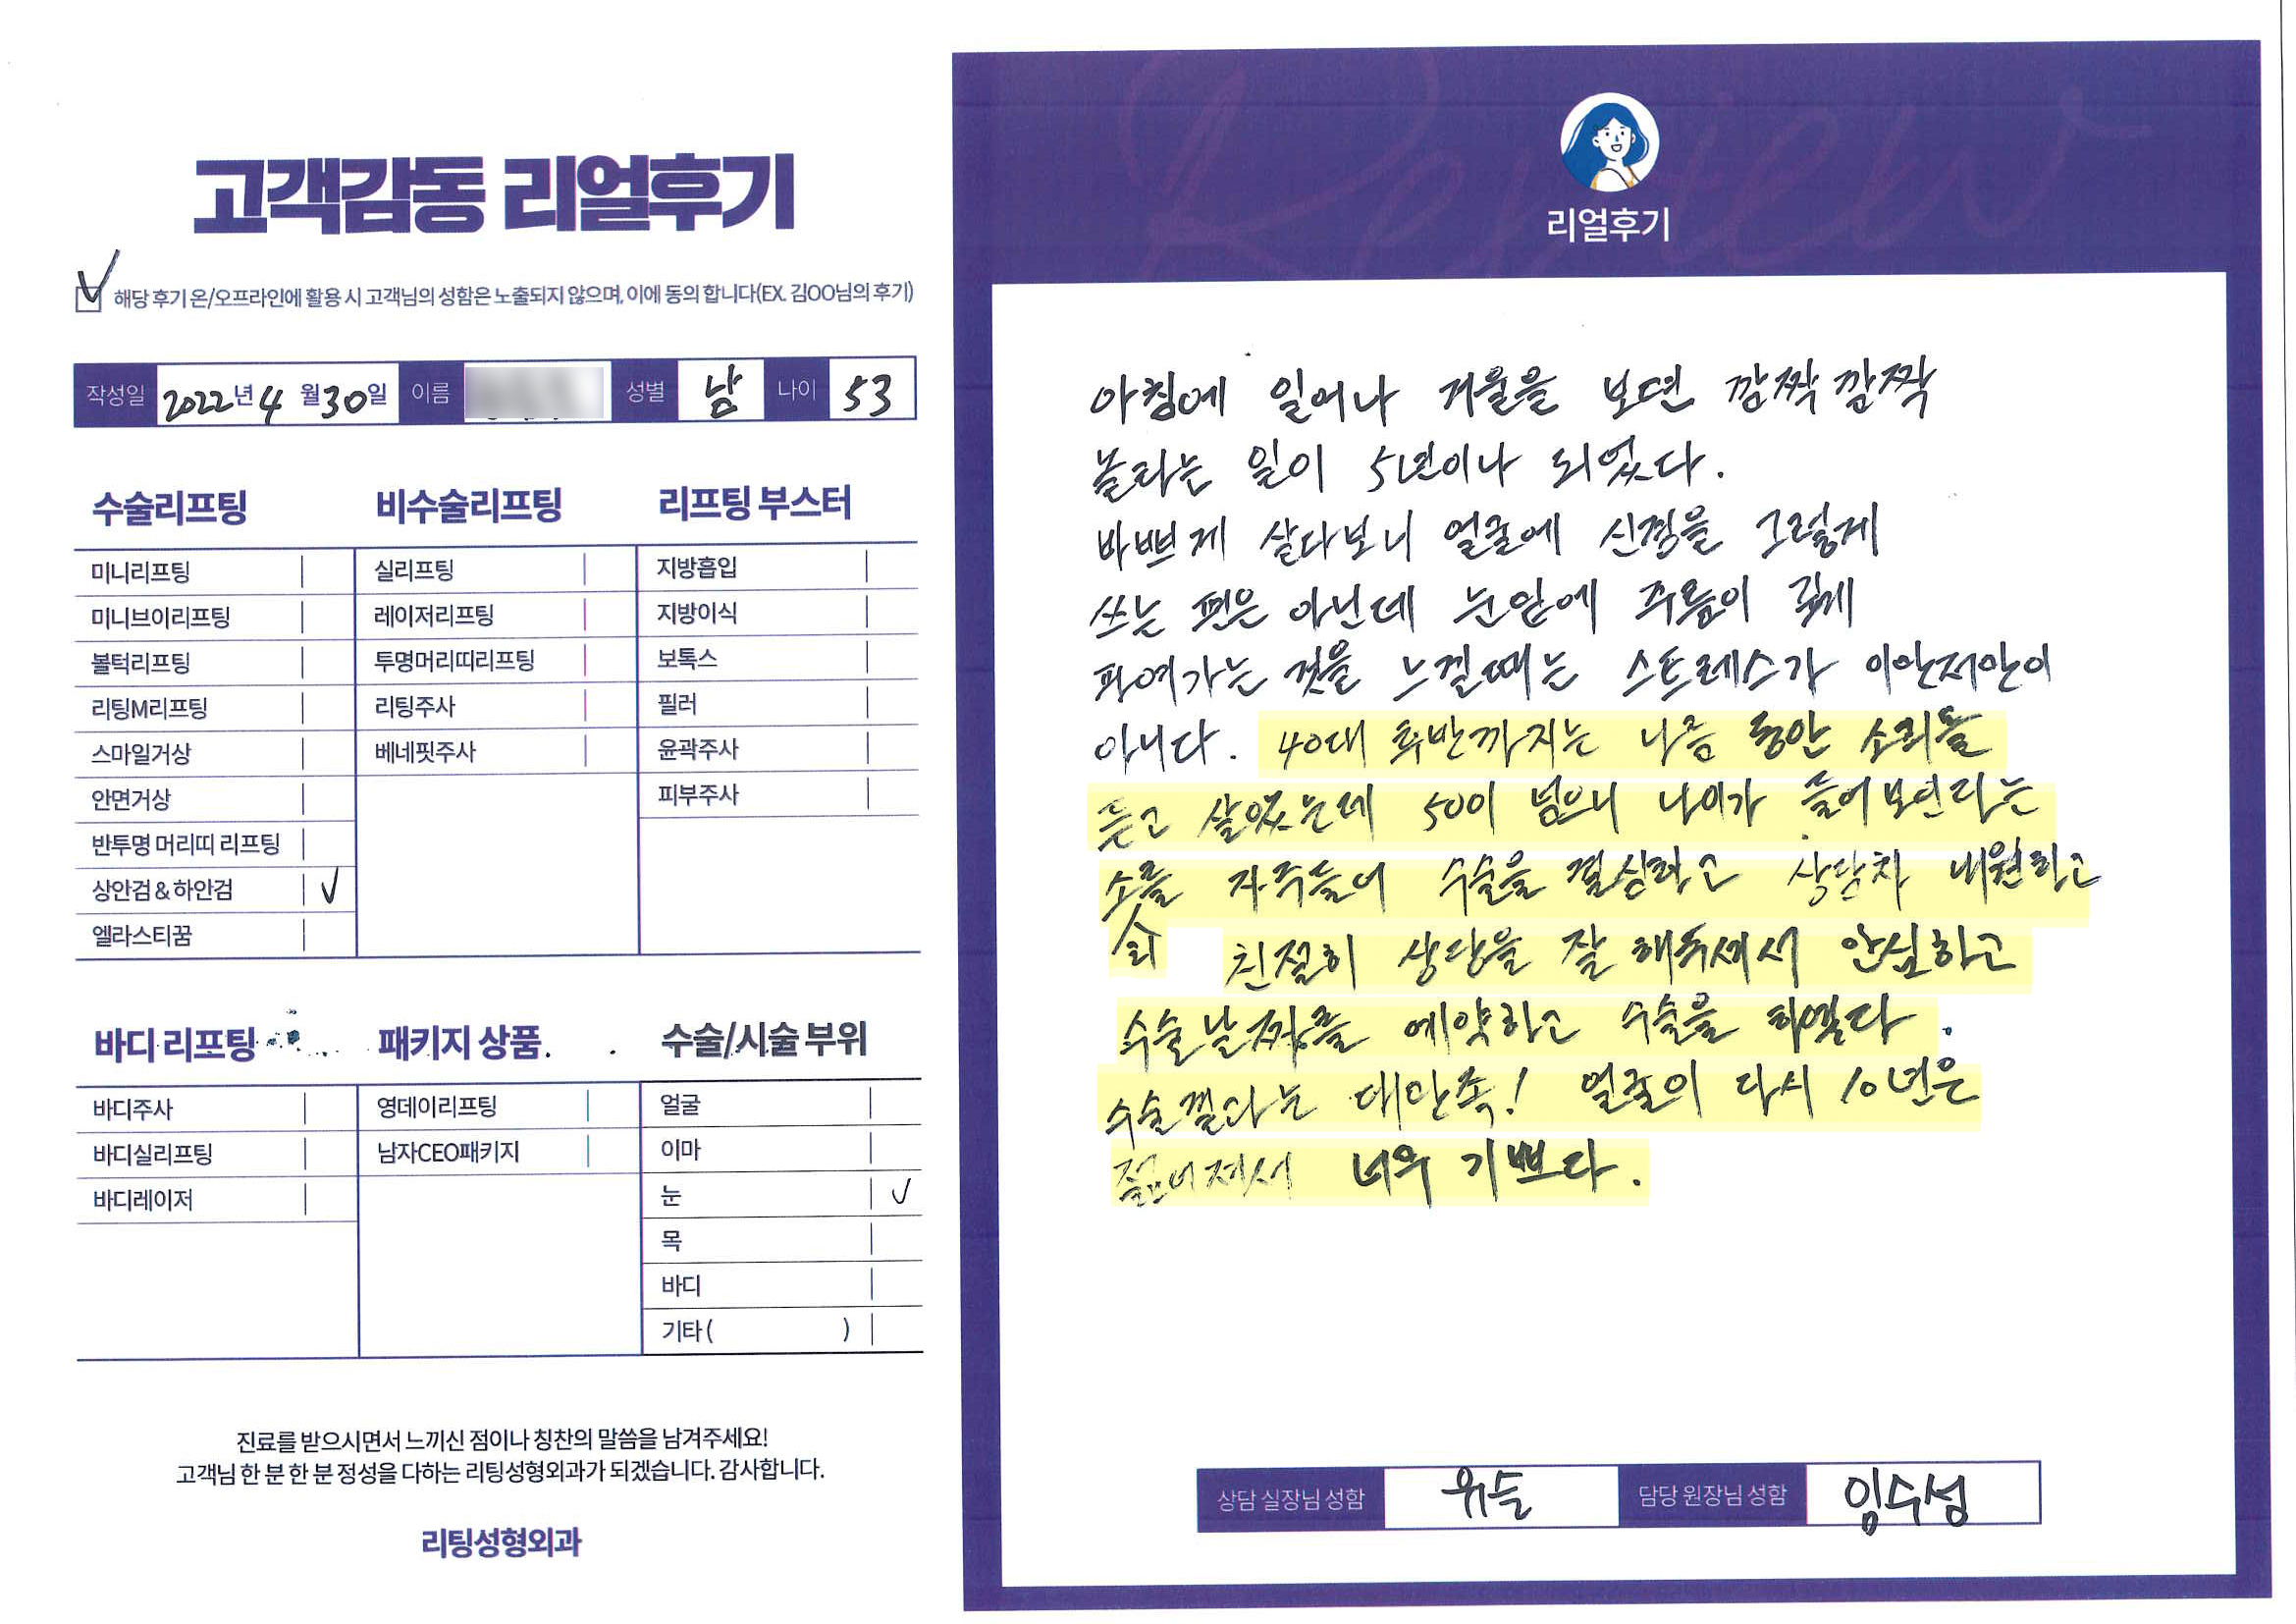 고객감동 리얼후기
해당 후기 온/오프라인에 활용 시 고객님의 성함은 노출되지 않으며, 이에 동의 합니다(EX. 김OO님의 후기)
작성일 2022년 4월 30일 이름 성별 남 나이 53
수술리프팅
미니리프팅
미니브이리프팅
볼턱리프팅
리팅M리프팅
스마일거상
안면거상
반투명 머리띠 리프팅
상안검 & 하안검 ✓
엘라스티꿈
비수술리프팅
실리프팅
레이저리프팅
투명머리띠리프팅
리팅주사
베네핏주사
리프팅 부스터
지방흡입
지방이식
보톡스
필러
윤곽주사
피부주사
바디 리프팅
바디주사
바디실리프팅
바디레이저
패키지 상품
영데이리프팅
남자CEO패키지
수술/시술 부위
얼굴
이마
눈 ✓
목
바디
기타 ( )
진료를 받으시면서 느끼신 점이나 칭찬의 말씀을 남겨주세요!
고객님 한 분 한 분 정성을 다하는 리팅성형외과가 되겠습니다. 감사합니다.
리팅성형외과
Review
리얼후기
아침에 일어나 거울을 보면 깜짝 깜짝
놀라는 일이 5년이나 되었다.
바쁘게 살다보니 얼굴에 신경을 그렇게
쓰는 편은 아닌데 눈밑에 주름이 깊게
파여가는 것을 느낄때는 스트레스가 이만저만이
아니다. 40대 후반까지는 나름 동안 소리를
듣고 살았는데 50이 넘으니 나이가 들어보인다는
소를 자주들어 수술을 결심하고 상담차 내원하고
리 친절히 상담을 잘 해주셔서 안심하고
수술날짜를 예약하고 수술을 하였다.
수술결과는 대만족! 얼굴이 다시 10년은
젊어져서 너무 기쁘다.
상담 실장님 성함 위슬 담당 원장님 성함 임수성